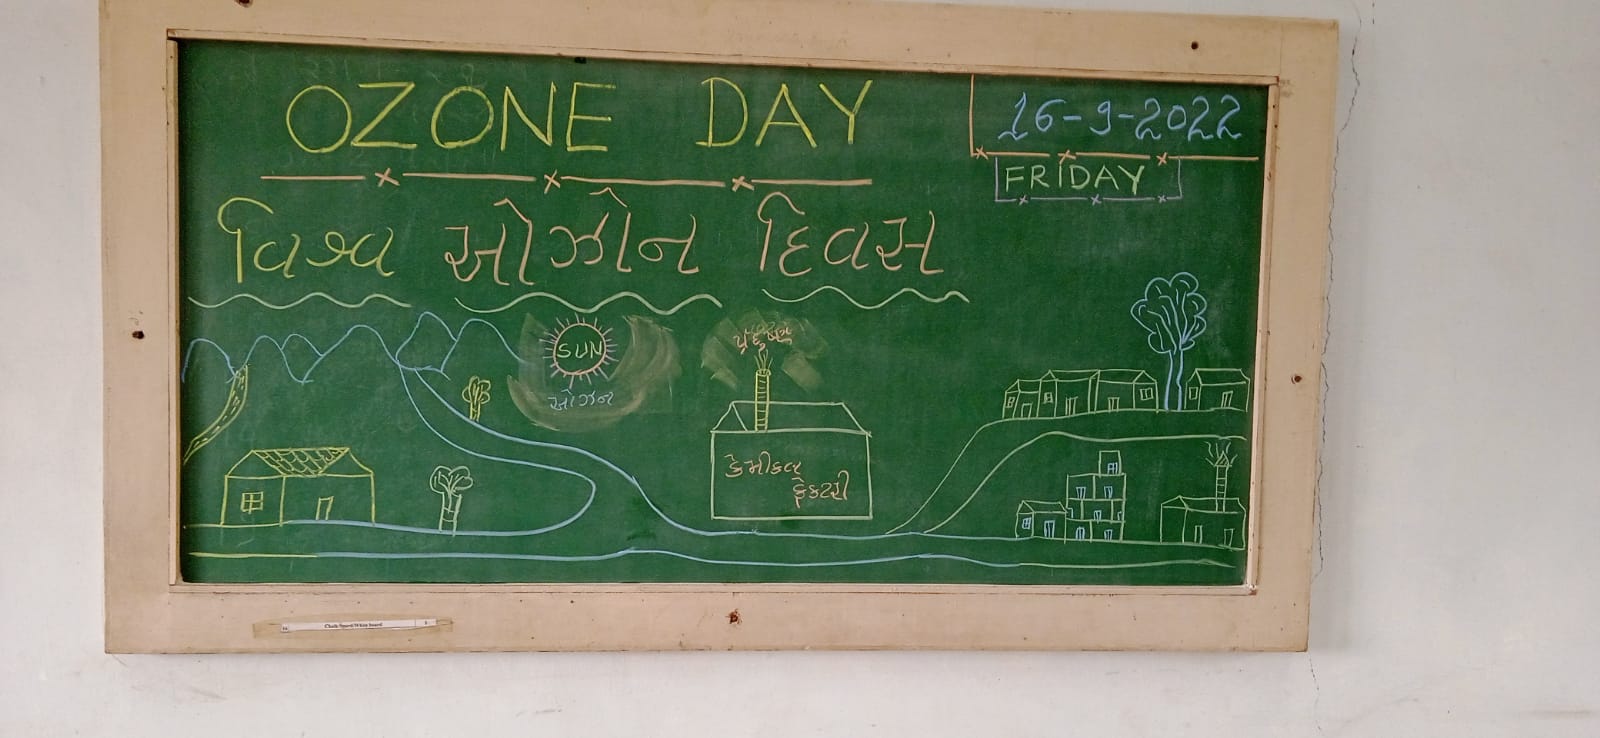 OZONE DAY
16-9-2022
FRIDAY
વિશ્વ ઓઝોન દિવસ
SUN
ઓઝોન
પ્રદુષણ
કેમીકલ
ફેકટરી
Chalk board/White board